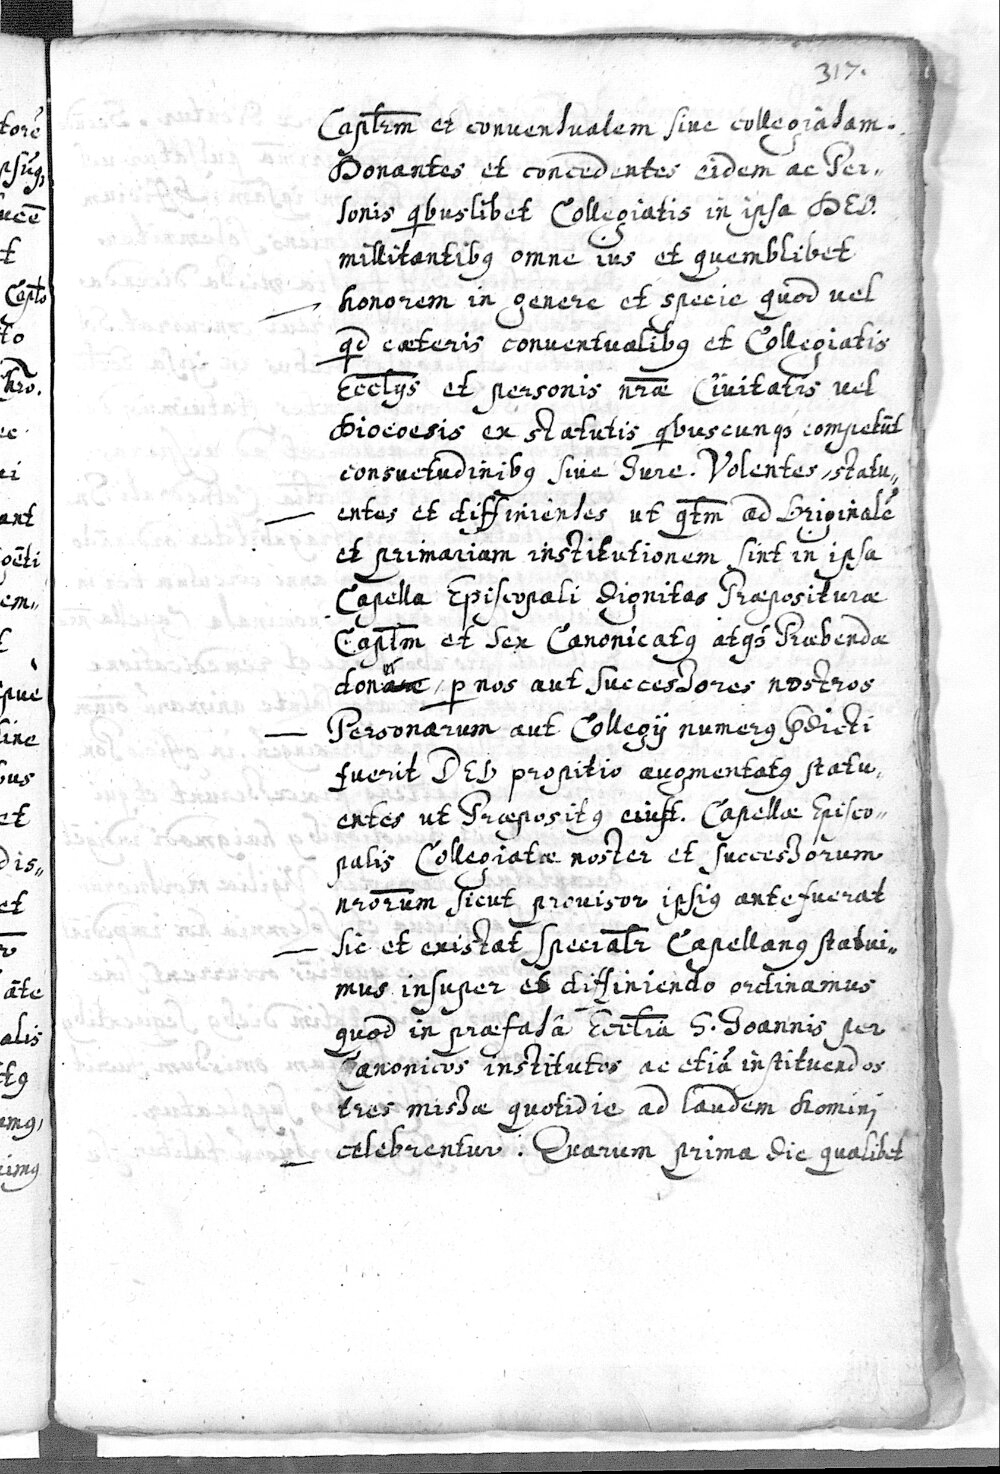 317.
Capl̃rm et conventualem sive collegiatam.
Donantes et concedentes eidem ac Per„
sonis qbuslibet Collegiatis in ipsa DEO.
millitantibꝰ omne ius et quemblibet
honorem in genere et specie quod vel
qd cæteris conventualibꝰ et Collegiatis
Eccl̃ijs et personis nr̃æ Civitatis vel
Diocoesis ex statutis qbuscunqꝫ competũt
consvetudinibꝰ sive Jure. Volentes, statu„
entes et diffinientes ut qt̃m ad Originalẽ
et primariam institutionem sint in ipsa
Capella Episcopali dignitas Præposituræ
Capl̃m et sex Canonicatꝰ atqꝫ Præbendæ
donec, p nos aut successores nostros
Personarum aut Collegij numerꝰ p̃dicti
fuerit DEO propitio augmentatꝰ statu„
entes ut Præpositꝰ eiusd. Capellæ Episco„
palis Collegiatæ noster et successorum
nr̃orum sicut provisor ipsiꝰ ante fuerat
sic et existat specialr̃ Capellanꝰ statui„
mus insuper et diffiniendo ordinamus
quod in præfatâ Eccl̃ia S. Joannis per
Canonicos institutos ac etiã instituendos
tres missæ quotidie ad laudem Domini
celebrentur. Quarum prima die qualibet